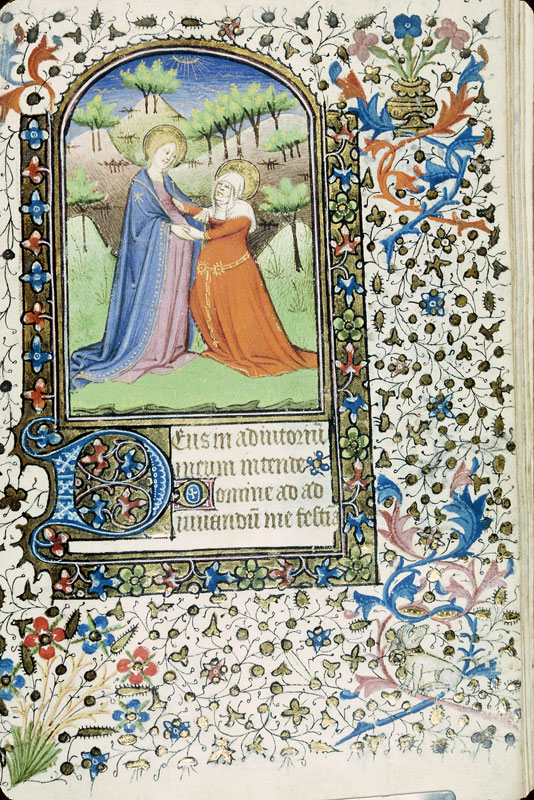 Deus in adiutoriū
meum intende
Domine ad ad
iuuandū me festīa